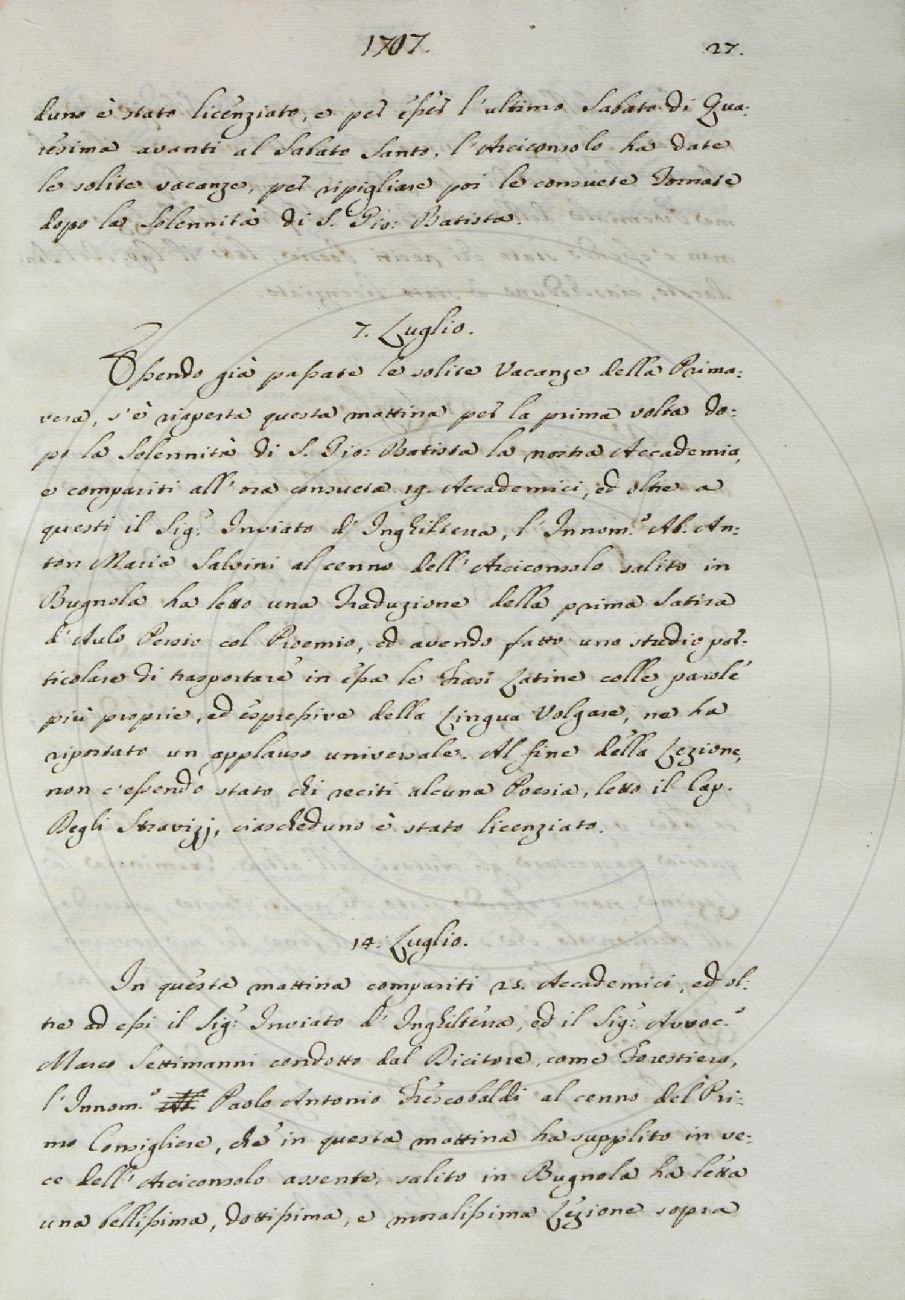 1707. 27.
duno è stato licenziato, e per esser l'ultimo Sabato di Qua:
resima avanti al Sabato Santo, l'Arciconsolo ha date
le solite vacanze, per ripigliare poi le consuete Tornate
dopo la Solennità di S. Gio: Batista.
7. Luglio.
Essendo già passate le solite Vacanze della Prima:
vera, s'è riaperta questa mattina per la prima volta do:
po la Solennità di S. Gio: Batista la nostra Accademia,
e compariti all'ora consueta 19. Accademici, ed oltre a
questi il Sig.r Inviato d'Inghilterra, l'Innom.o Ab. An:
ton Maria Salvini al cenno dell'Arciconsolo salito in
Bugnola ha letto una Traduzione della prima Satira
d'Aulo Persio col Proemio, ed avendo fatto uno studio par:
ticolare di trasportare in essa le Frasi Latine colle parole
più proprie, ed espressive della Lingua Volgare, ne ha
riportato un applauso universale. Al fine della Lezione,
non c'essendo stato chi reciti alcuna Poesia, letto il Cap.
Degli Stravizj, ciascheduno è stato licenziato.
14. Luglio.
In questa mattina compariti 25. Accademici, ed ol:
tre ad essi il Sig.r Inviato d'Inghilterra, ed il Sig.r Avvoc.o
Marco Settimanni condotto dal Dicitore, come Forestiero,
l'Innom.o Paolo Antonio Frescobaldi al cenno del Pri:
mo Consigliere, che in questa mattina ha supplito in ve:
ce dell'Arciconsolo assente, salito in Bugnola ha letta
una bellissima, dottissima, e moralissima Lezione sopra